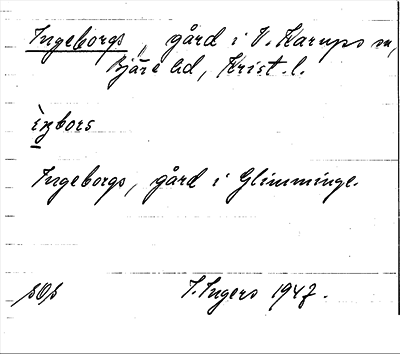 Ingeborgs „ gård i V. Karups sn,
Bjäre hd, Krist. l.
ìŋbors
Ingeborgs, gård i Glimminge.
sOs I. Ingers 1947.